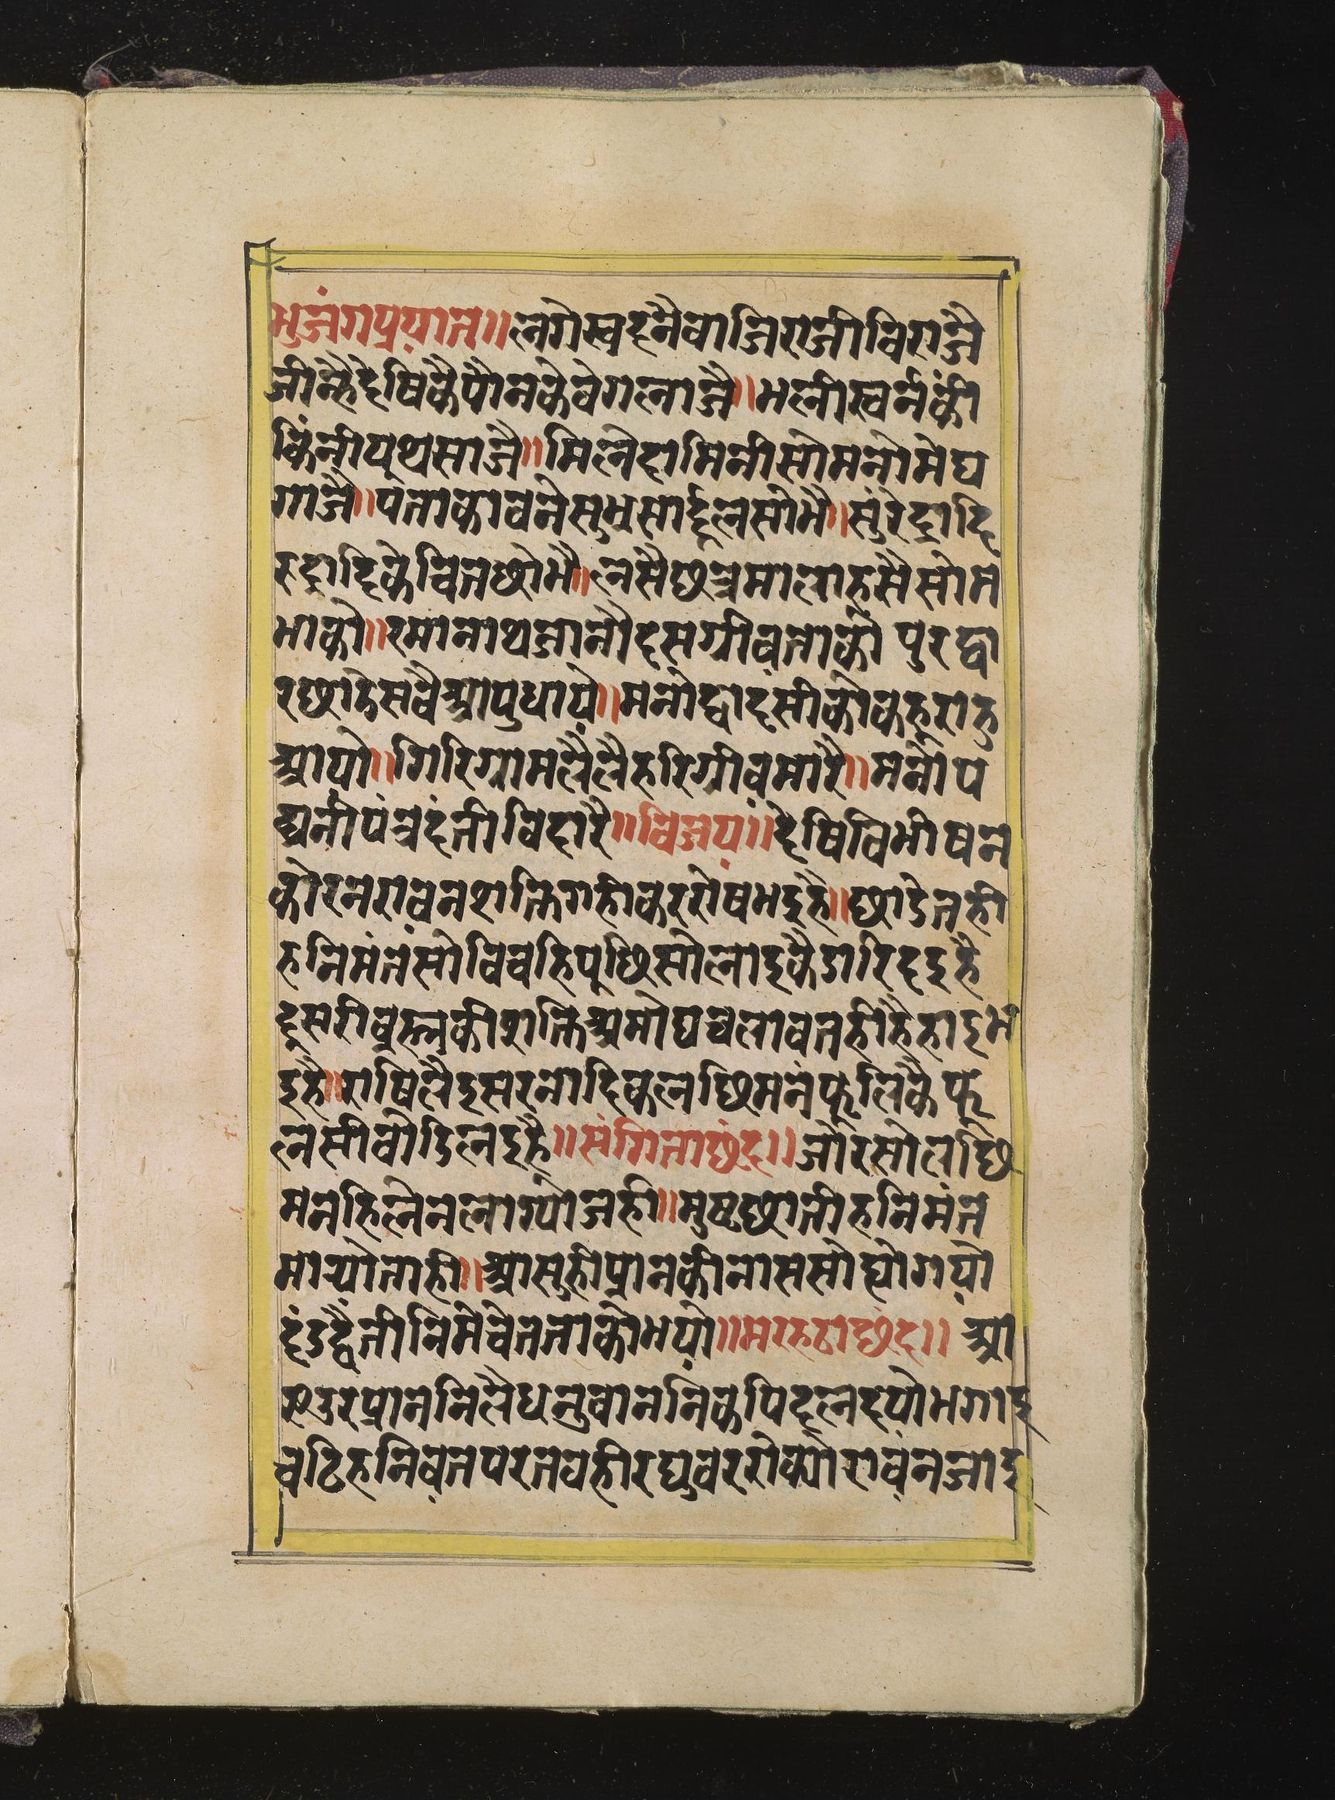 भुजंगप्रयात॥ लगेस्वदनैबाजिराजीविराजै
जीन्हैदेषिकैपौनकेवेगलाजै॥ भलीस्वर्नकीं
किंनीयुथसाजै॥ मिलेदामिनीसोमनोमेघ
गाजै॥ पताकावनेसुभ्रसार्दूलसोभै॥ सुरेंद्रादि
रुद्रादिकेचितछोभै॥ लसैछत्रमालाहसैसोम
भाकों॥ रमानाथजानौदसग्रीवताकों पुरद्वा
रछाडेसवैआयुधाये॥ मनोद्वादसीकोकहूराहु
आयो॥ गिरिग्रामलैलैहरिग्रीवमारै॥ मनोप
द्यनीपंत्रदंतीविहारै॥ विजयं॥ देषिविभीषन
कोरनरावनशक्तिगहीकररोषभइहै॥ छाडेतही
हनिमंतंसोविचहिपूछिसोलाइकैडारिदइहै
दूसरीब्रह्मकीशक्तिअमोघचलावतहीहैहाइभ
इहै॥ राषिलैइसरनादिकलछिमनफूलिकैफू
लसीवोडिलइहै॥ संगिताछंद॥ जोरसोलछि
मनहिलेनलाग्योजही॥ मुष्टछातीहनिमंत
मार्‍योताही॥ आसुहीप्रानकीनाससोह्योगयो
दंडद्वैतीनिमेचेतताकोभयो॥ मरहठाछंद॥ आ
यउरप्राननिलैधनुबाननिंकपिदलदयोभगाइ
चढिहनिवतपरतवहीरघुवररोक्योरावंनजाइ